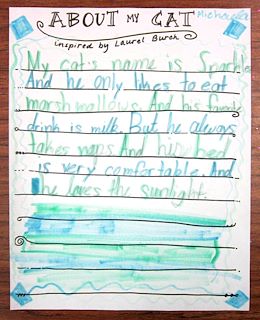 ABOUT MY CAT
Michaela
inspired by Laurel Burch
My cat's name is Sparkles
And he only likes to eat
marshmallows. And his favorite
drink is milk. But he always
takes naps. And his bed
is very comfortable. And
he loves the sunlight.